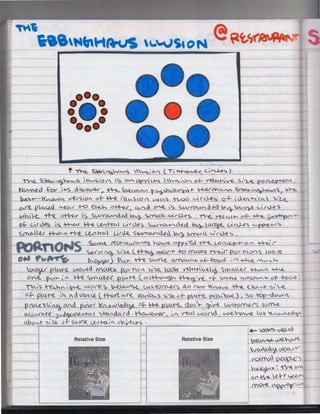 THE
EBBINGHAUS ILLUSION @ RESTAURANT
↑ The Ebbinghaus Illusion (Titchener Circles)
The Ebbinghaus illusion is an optical illusion of relative size perception.
Named for its discoverer, the German psychologist Hermann Ebbinghaus, the
best-known version of the illusion was two circles of identical size
are placed near to each other, and one is surrounded by large circles
while the other is surrounded by small circles. The result of the juxtaposition
of circles is that the central circle surrounded by large circles appears
smaller than the central circle surrounded by small circles.
PORTIONS
ON PLATE
Some restaurants have applied the concept on their
serving size (they want to make their portions look
bigger). Put the same amount of food in the much
larger plate would make portion size look relatively smaller than the
one put in the smaller plate (although they're of same amount of food).
This technique works because customers do not know the exact size
of plate in advance (there are various size of plates possible), so top-down
processing and prior knowledge of the plate don't give customers some
accurate judgemental standard. However, in real world, we have lot knowledge
about size of some certain objects.
Relative Size Relative Size
← looks weird
because we have
knowledge about
normal people's
height. The one
on the left seem
more